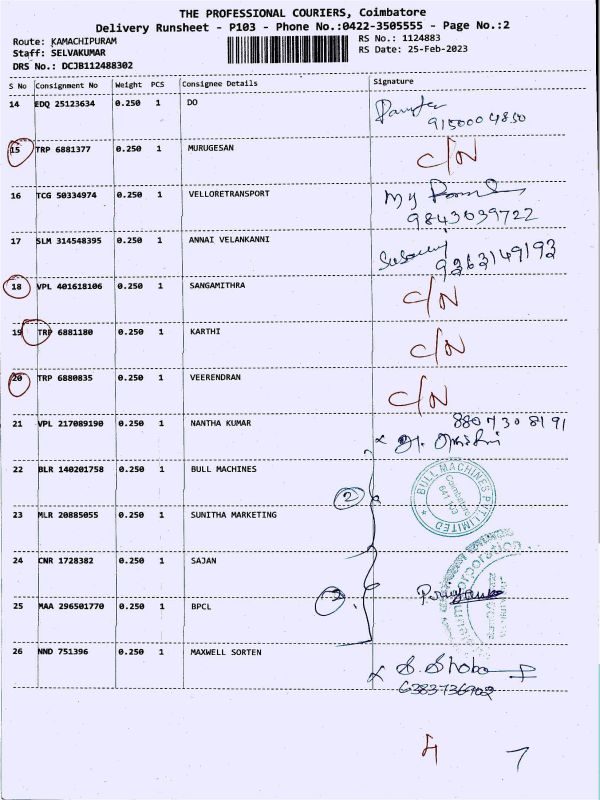 THE PROFESSIONAL COURIERS, Coimbatore
Delivery Runsheet - P103 - Phone No.:0422-3505555 - Page No.:2
Route: KAMACHIPURAM
RS No.: 1124883
Staff: SELVAKUMAR
RS Date: 25-Feb-2023
DRS No.: DCJB112488302
S No Consignment No Weight PCS Consignee Details Signature
14 EDQ 25123634 0.250 1 DO
9150004850
15 TRP 6881377 0.250 1 MURUGESAN C/N
16 TCG 50334974 0.250 1 VELLORETRANSPORT
9843039722
17 SLM 314548395 0.250 1 ANNAI VELANKANNI
9363149193
18 VPL 401618106 0.250 1 SANGAMITHRA C/N
19 TRP 6881180 0.250 1 KARTHI C/N
20 TRP 6880835 0.250 1 VEERENDRAN C/N
21 VPL 217089190 0.250 1 NANTHA KUMAR 8807308191
22 BLR 140201758 0.250 1 BULL MACHINES
BULL MACHINES PVT LIMITED
Coimbatore
641 103
2
23 MLR 20885055 0.250 1 SUNITHA MARKETING
24 CNR 1728382 0.250 1 SAJAN
Priyanka
25 MAA 296501770 0.250 1 BPCL
26 NND 751396 0.250 1 MAXWELL SORTEN
S. Shoba
6383736902
7